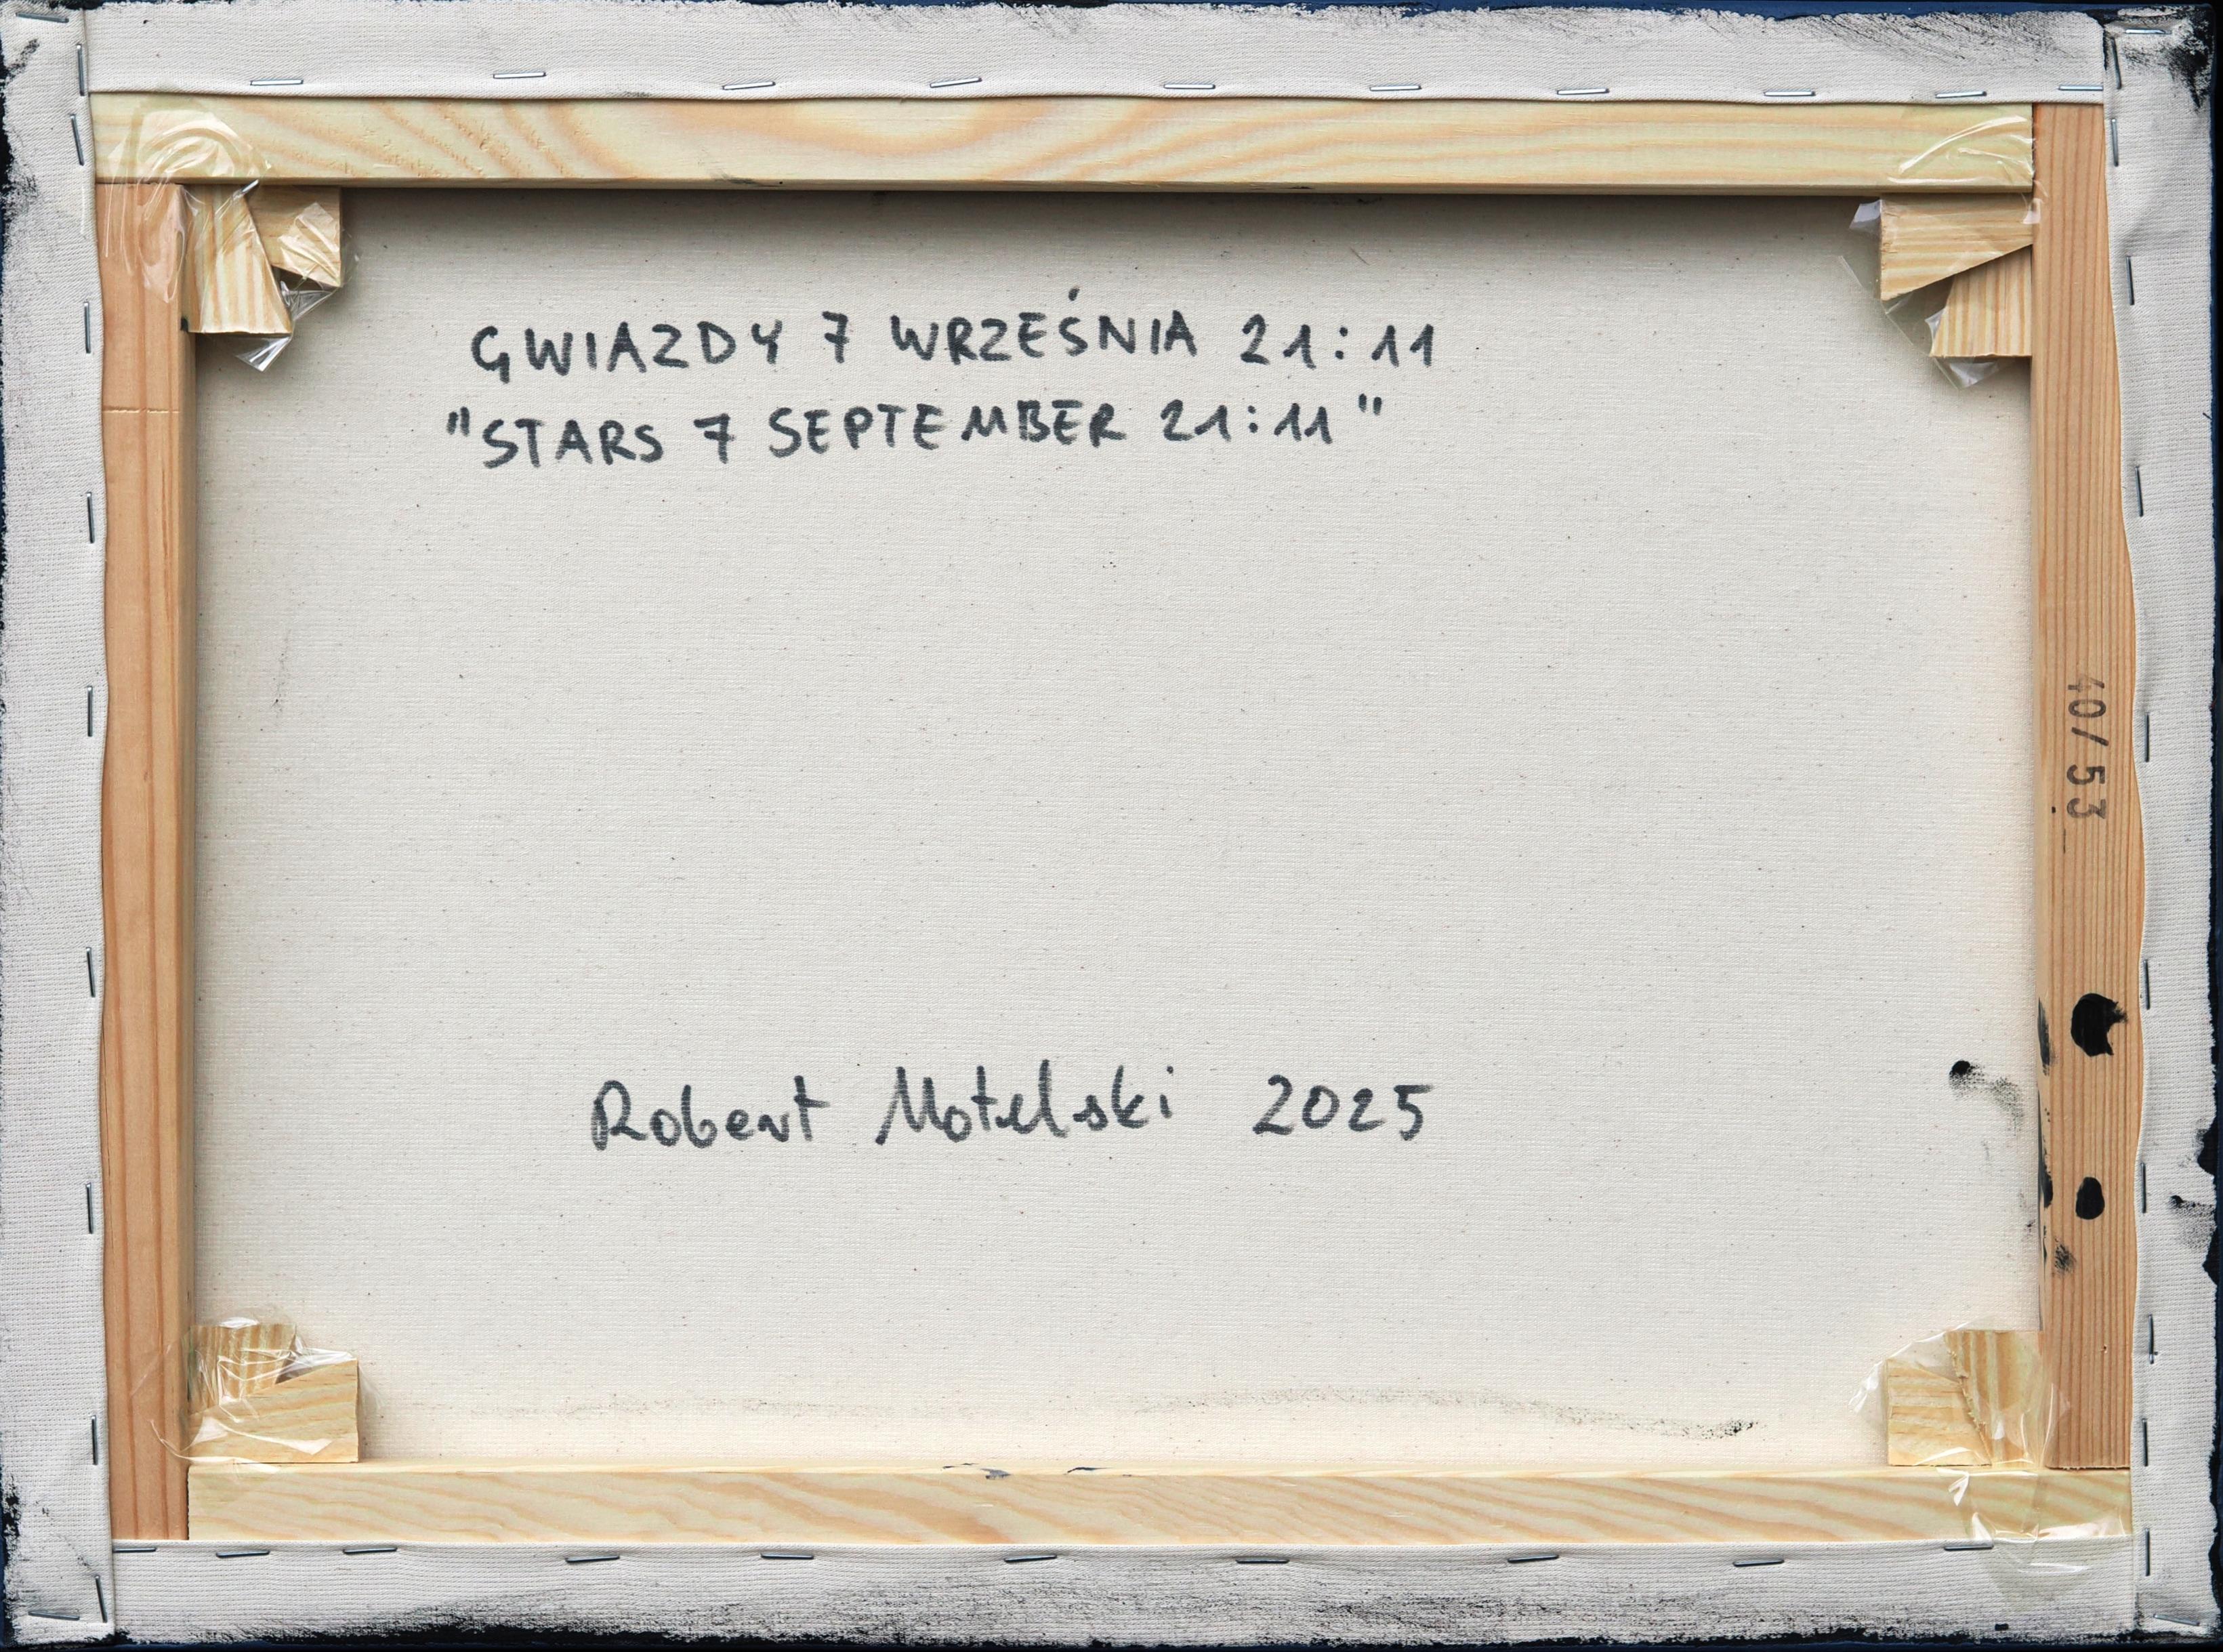 GWIAZDY 7 WRZEŚNIA 21:11
"STARS 7 SEPTEMBER 21:11"
40/53
Robert Motelski 2025